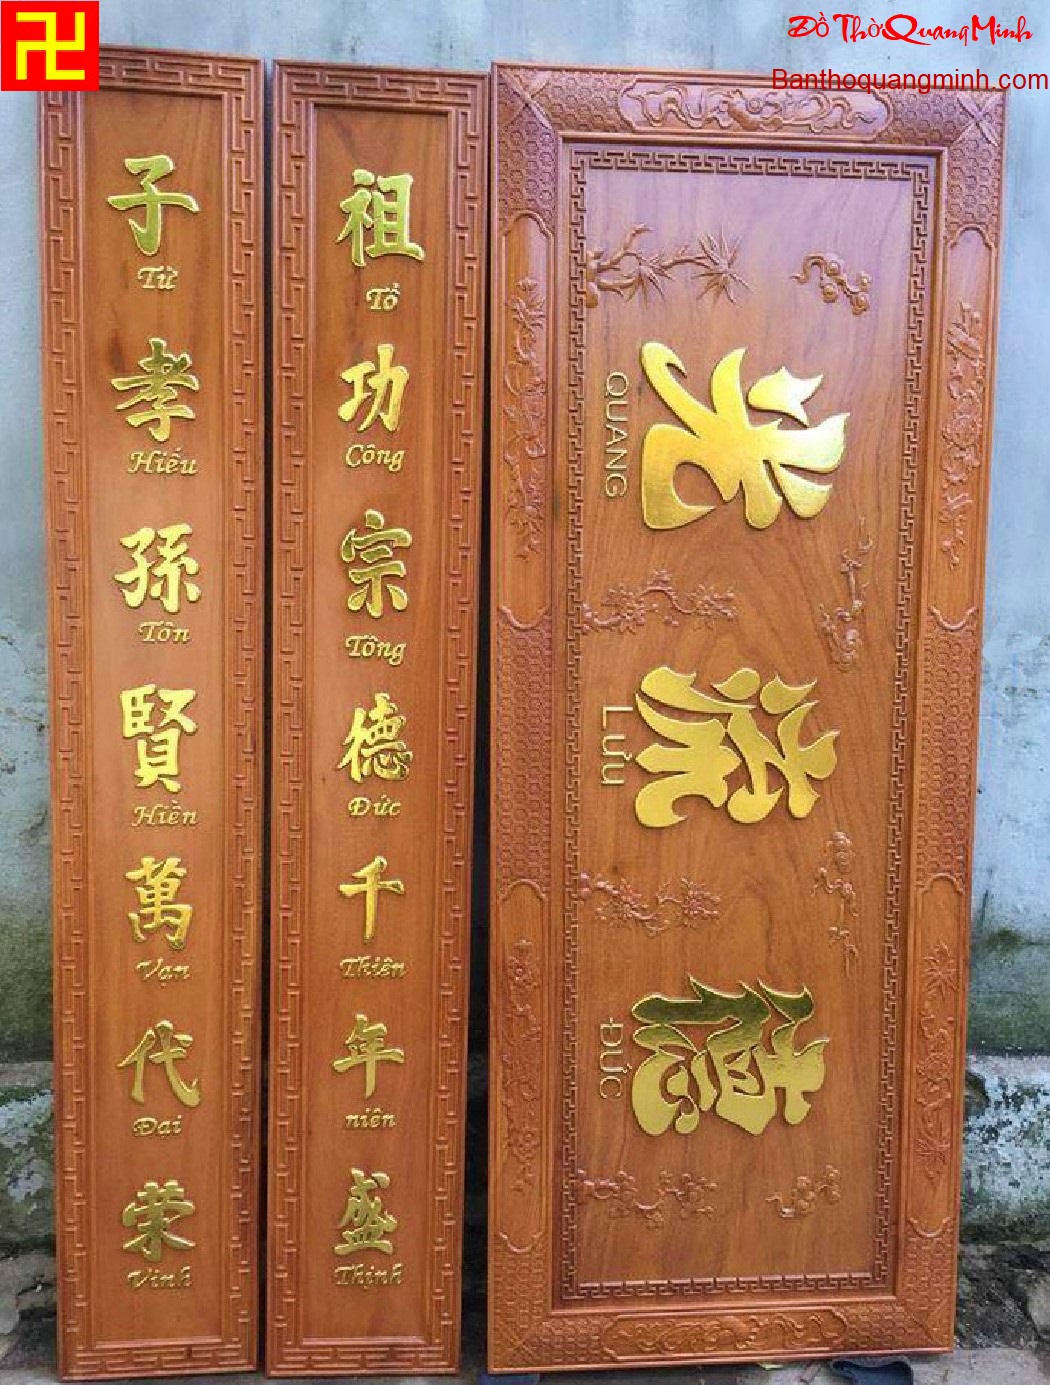 Đồ Thờ Quang Minh
Banthoquangminh.com
子
Tử
孝
Hiếu
孫
Tôn
賢
Hiền
萬
Vạn
代
Đại
荣
Vinh
祖
Tổ
功
Công
宗
Tông
德
Đức
千
Thiên
年
niên
盛
Thịnh
光
QUANG
流
LƯU
德
ĐỨC